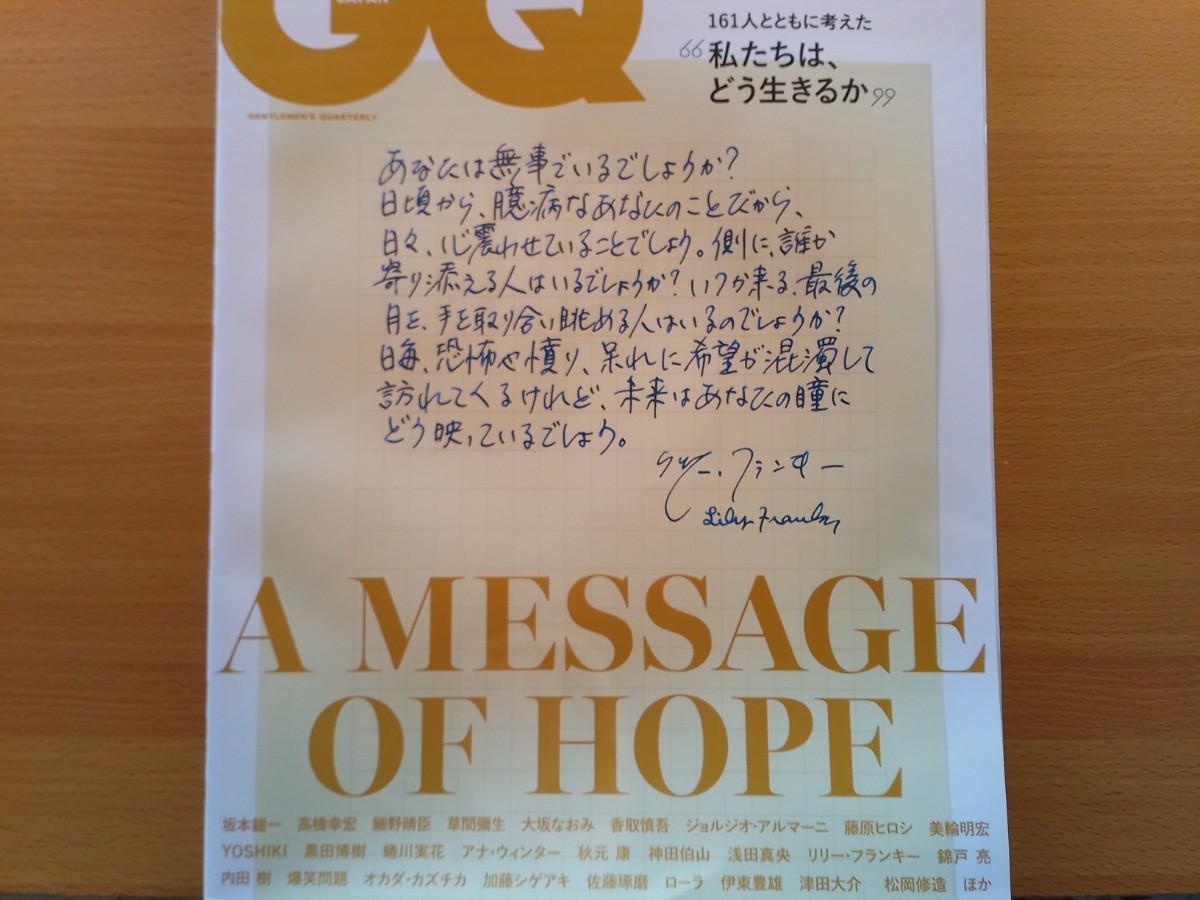 JAPAN
GQ
GENTLEMEN'S QUARTERLY
161人とともに考えた
“私たちは、
どう生きるか”
あなたは無事でいるでしょうか?
日頃から、臆病なあなたのことだから、
日々、心震わせていることでしょう。側に、誰か
寄り添える人はいるでしょうか? いつか来る、最後の
月を、手を取り合い眺める人はいるのでしょうか?
毎日、恐怖や憤り、呆れに希望が混濁して
訪れてくるけれど、未来はあなたの瞳に
どう映っているでしょう。
リリー・フランキー
Lily Franky
A MESSAGE
OF HOPE
坂本龍一 高橋幸宏 細野晴臣 草間彌生 大坂なおみ 香取慎吾 ジョルジオ・アルマーニ 藤原ヒロシ 美輪明宏
YOSHIKI 黒田博樹 蜷川実花 アナ・ウィンター 秋元 康 神田伯山 浅田真央 リリー・フランキー 錦戸 亮
内田 樹 爆笑問題 オカダ・カズチカ 加藤シゲアキ 佐藤琢磨 ローラ 伊東豊雄 津田大介 松岡修造 ほか